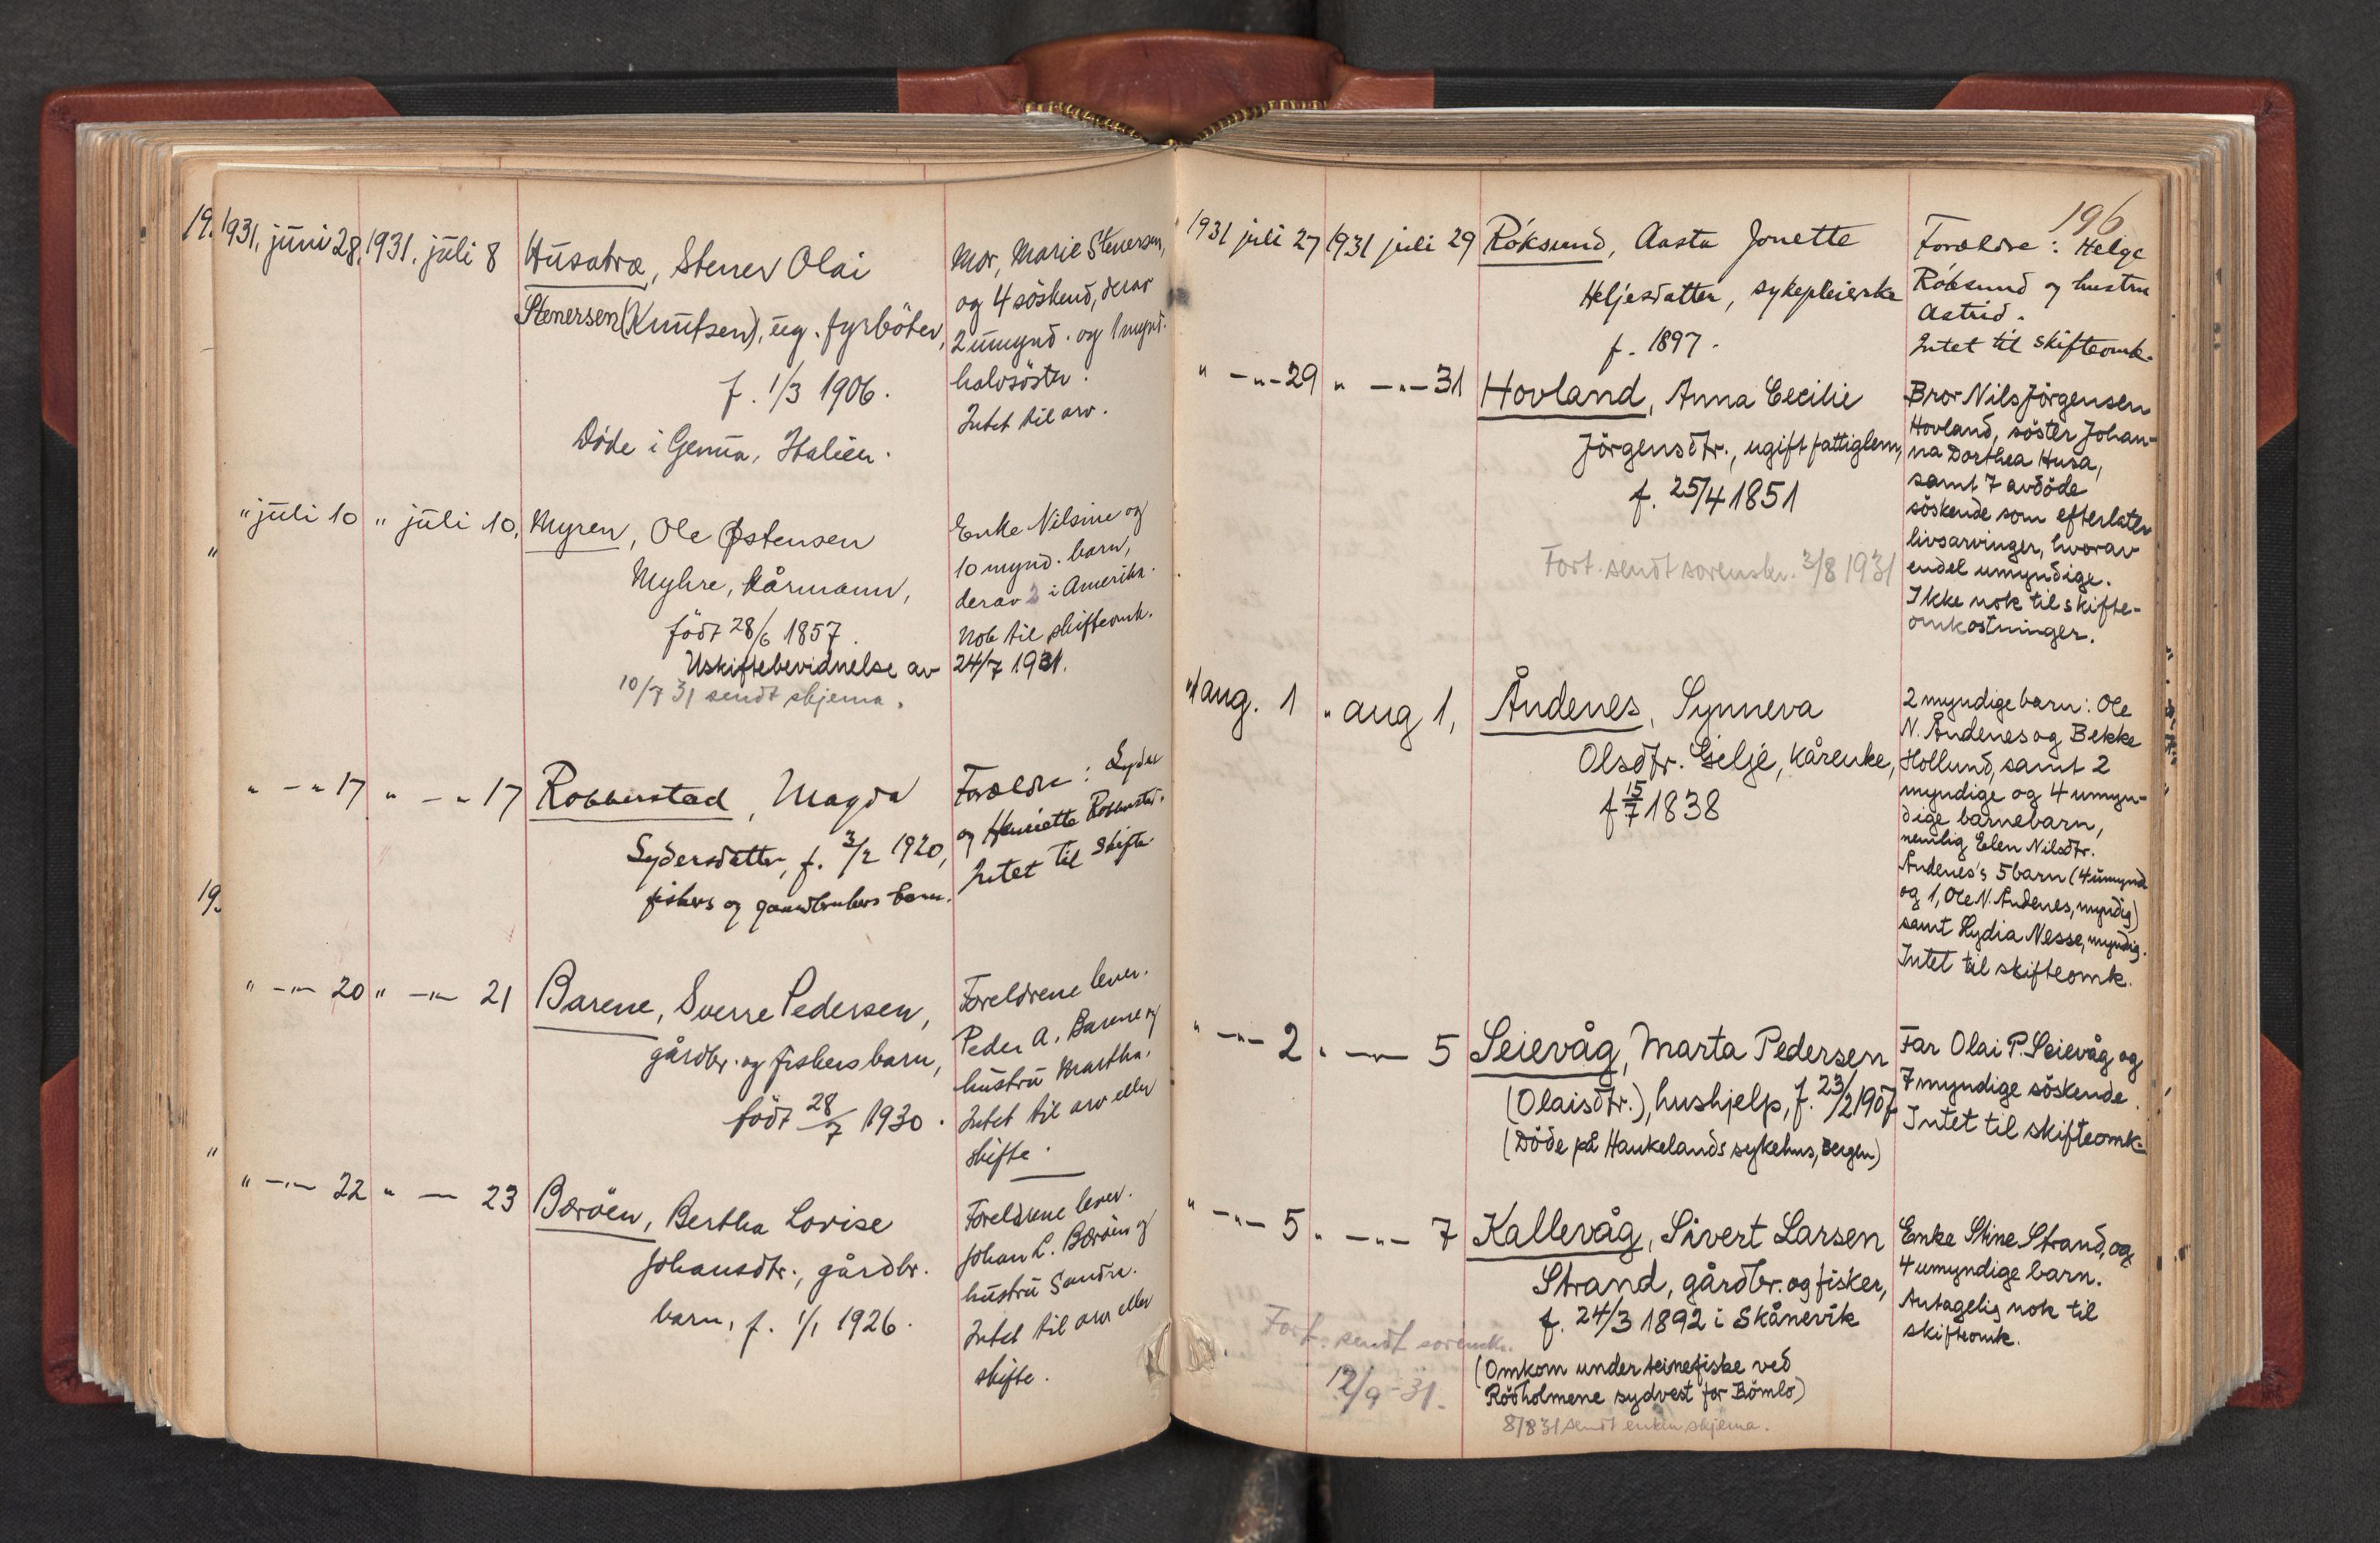 19.
1931. juni 28. 1931. juli 8 Husatræ, Stener Olai
Stenersen (Knutsen), ug. fyrböter,
f. 1/3 1906.
Döde i Genua, Italien.
Mor, Marie Stenersen,
og 4 söskend, derav
2 umynd. og 1 mynd.
halvsöster.
Intet til arv.
" juli 10 " juli 10, Myren, Ole Østensen
Myhre, kårmann,
födt 28/6 1857.
Uskiftebevidnelse av 24/7 1931.
10/7 31 sendt skjema.
Enke Nilsine og
10 mynd. barn,
derav 2 i Amerika.
Nok til skifteomk.
" -"- 17 " -"- 17 Robberstad, Magda
Sydersdatter, f. 3/2 1920,
fiskers og gaardbrukers barn.
Forældre: Syder
og Henriette Robberstad.
Intet til skifte
19.
" -"- 20 " -"- 21 Barene, Sverre Pedersen,
gårdbr. og fiskers barn,
födt 28/7 1930.
Foreldrene lever.
Peder A. Barene og
hustru Martha.
Intet til arv eller
skifte.
" -"- 22 " -"- 23 Børöen, Bertha Lovise
Johansdtr., gårdbr.
barn, f. 1/1 1926.
Foreldrene lever.
Johan L. Børöen og
hustru Sandra.
Intet til arv eller
skifte.
196
1931 juli 27 1931 juli 29 Röksund, Aasta Jonette
Heljesdatter, sykepleierske
f. 1897.
Forældre: Helge
Röksund og hustru
Astrid.
Intet til skifteomk.
" -"- 29 " -"- 31 Hovland, Anna Cecilie
Jörgensdtr., ugift fattiglem,
f. 25/4 1851
Fort. sendt sorenskr. 3/8 1931
Bror Nils Jörgensen
Hovland, söster Johan-
na Dorthea Husa,
samt 7 avdöde
söskende som efterlater
livsarvinger, hvorav
endel umyndige.
Ikke nok til skifte-
omkostninger.
" aug. 1 " aug 1, Åndenes, Synneva
Olsdtr. Gjelje, kårenke,
f 15/7 1838
2 myndige barn: Ole
N. Åndenes og Bekke
Hollund, samt 2
myndige og 4 umyn-
dige barnebarn,
nemlig Elen Nilsdtr.
Åndenes's 5 barn (4 umynd
og 1, Ole N. Åndenes, myndig)
samt Lydia Nesse, myndig.
Intet til skifteomk.
" -"- 2 " -"- 5 Seievåg, Marta Pedersen
(Olaisdtr.), hushjelp, f. 23/2 1907
(Döde på Haukelands sykehus, Bergen)
Far Olai P. Seievåg og
7 myndige söskende.
Intet til skifteomk.
" -"- 5 " -"- 7 Kallevåg, Sivert Larsen
Strand, gårdbr. og fisker,
f. 24/3 1892 i Skånevik
Fort. sendt sorenskr.
12/9-31.
(Omkom under teinefiske ved
Rödholmene sydvest for Bömlo)
8/8 31 sendt enken skjema.
Enke Stine Strand, og
4 umyndige barn.
Antagelig nok til
skifteomk.